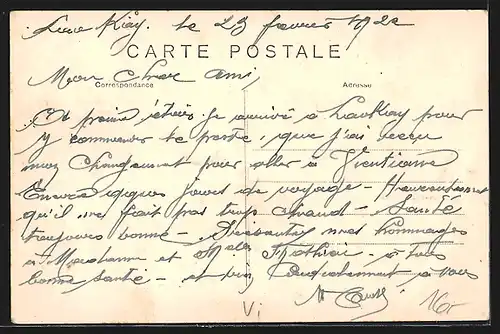 le 23 février 1922
CARTE POSTALE
Mon cher ami,
Correspondance
Adresse
A peine étais-je arrivé à Laokay pour
y commander le poste, que j'ai reçu
mon changement pour aller à Vientiane
Encore quelques jours de voyage - Heureusement
qu'il ne fait pas trop chaud - Santé
toujours bonne - Présentez mes hommages
à Madame et Mathieu - à tous
bonne santé - et bien cordialement à vous
Vi
16,-